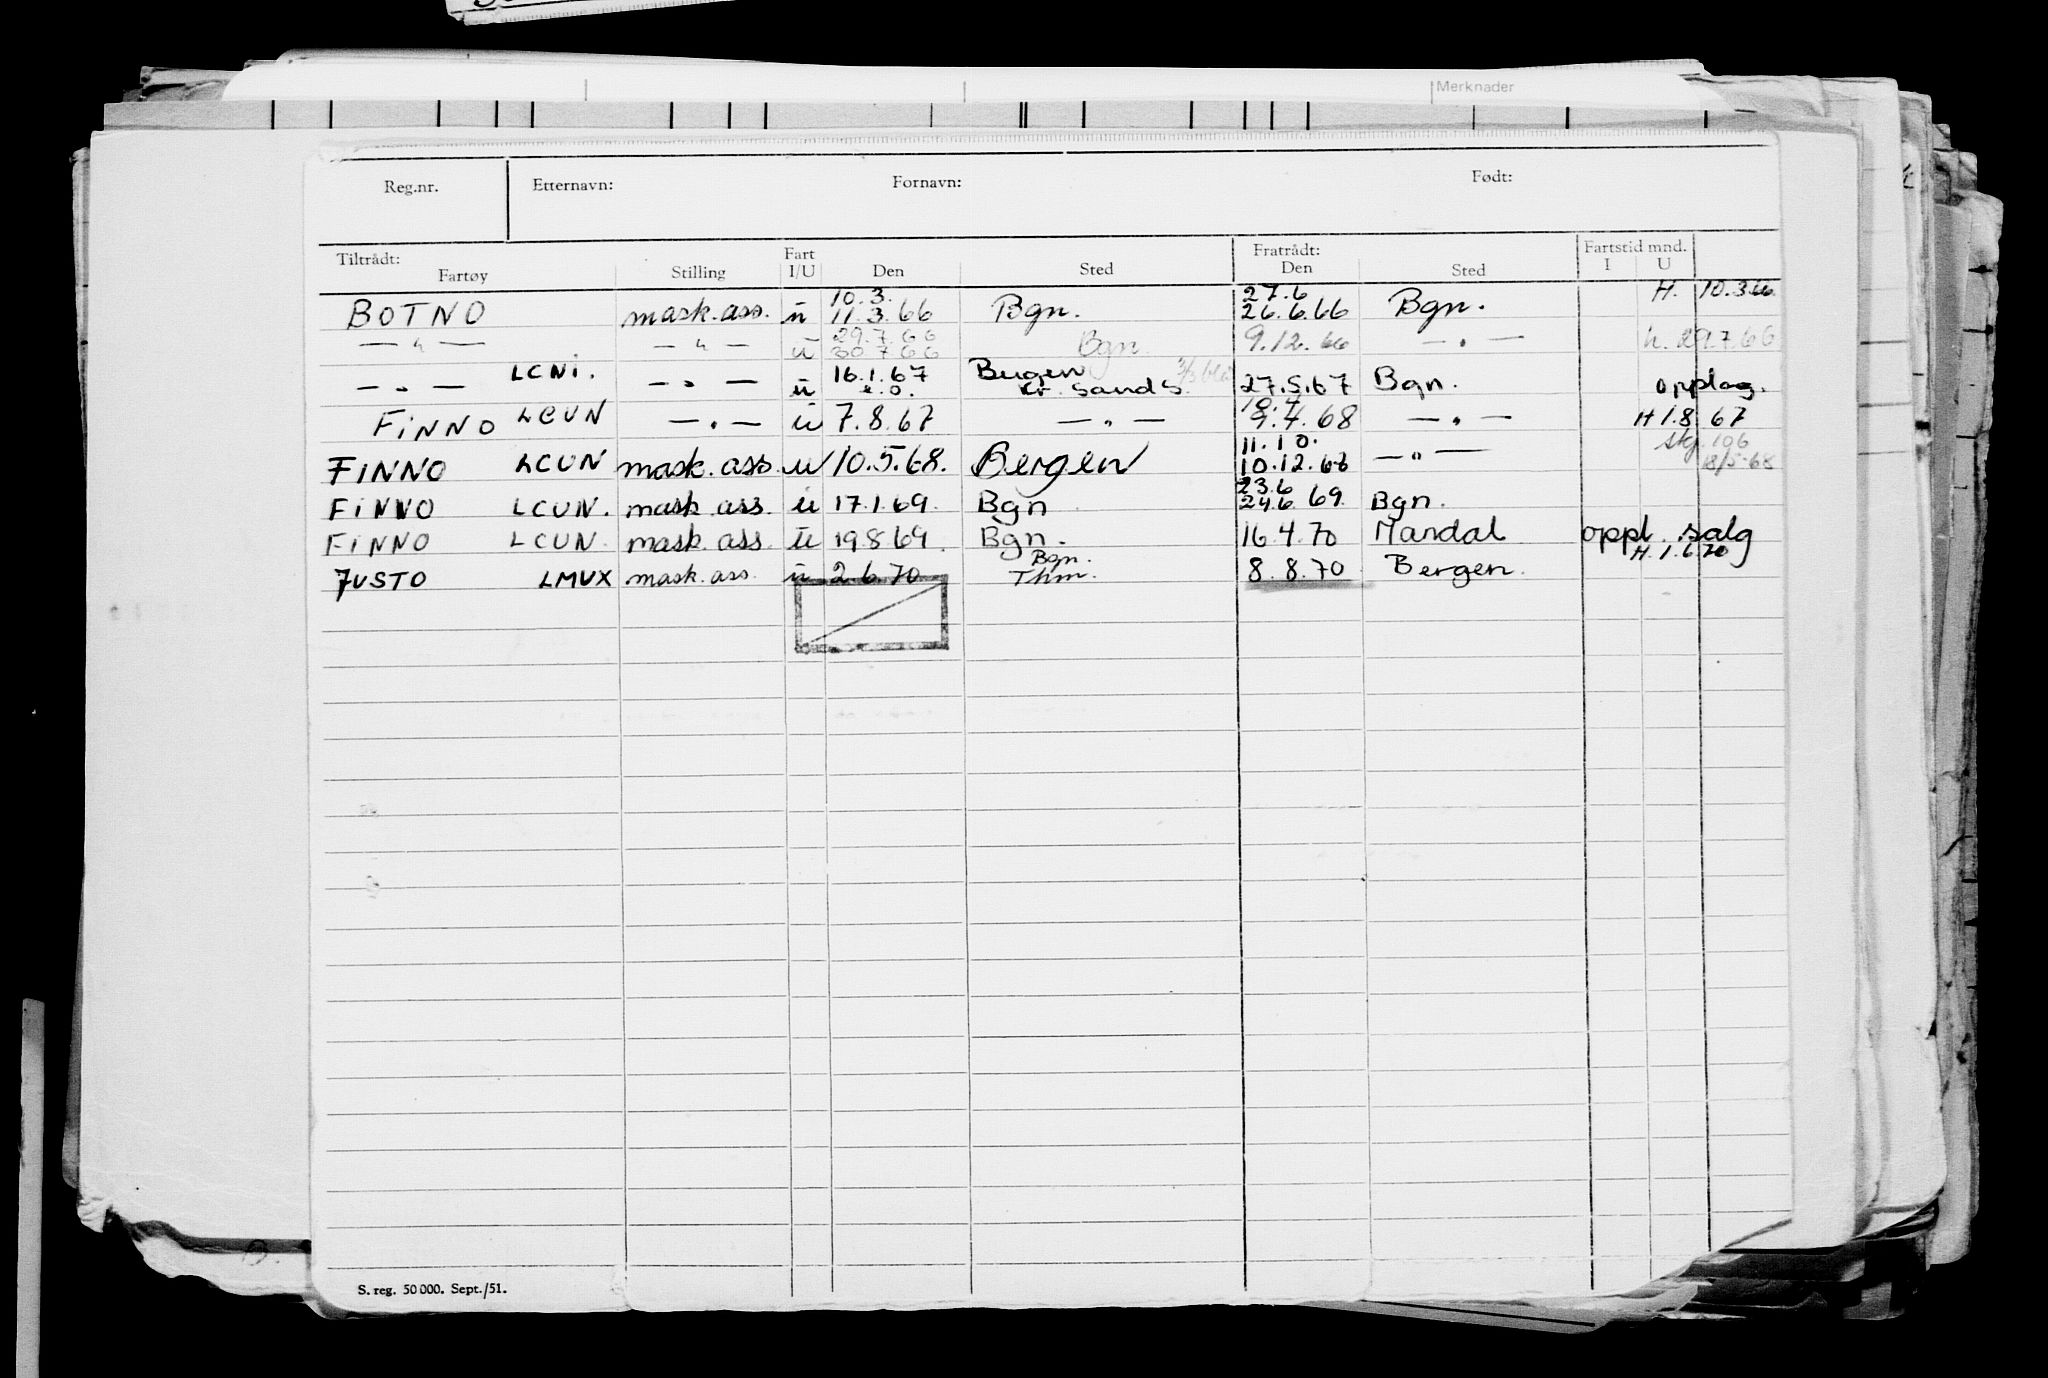 Merknader
Reg.nr. Etternavn: Fornavn: Født:
Tiltrådt: Fart Fratrådt: Fartstid mnd.
Fartøy Stilling I/U Den Sted Den Sted I U
10.3. 27.6 H. 10.3.66
BOTNO mask.ass. u 11.3.66 Bgn. 26.6.66 Bgn.
29.7.66
— " — — " — u 30.7.66 Bgn. 9.12.66 — " — h. 29.7.66
LCNI. 16.1.67 Bergen
— " — — " — u e.o. Kr. Sand S. 27.5.67 Bgn. opplag.
10.4
FINNO LCUN — " — u 7.8.67 — " — 9.4.68 — " — H 1.8 67
11.10. skj. 106
FINNO LCUN mask.ass. u 10.5.68. Bergen 10.12.68 — " — 18/5-68
23.6
FINNO LCUN. mask.ass. u 17.1.69. Bgn 24.6 69. Bgn.
FINNO LCUN. mask.ass. u 19.8.69. Bgn. 16.4.70 Mandal oppl. salg
Bgn. H. 1.6.70
JUSTO LMUX mask.ass. u 2.6.70 Thm. 8.8.70 Bergen.
S. reg. 50 000. Sept./51.